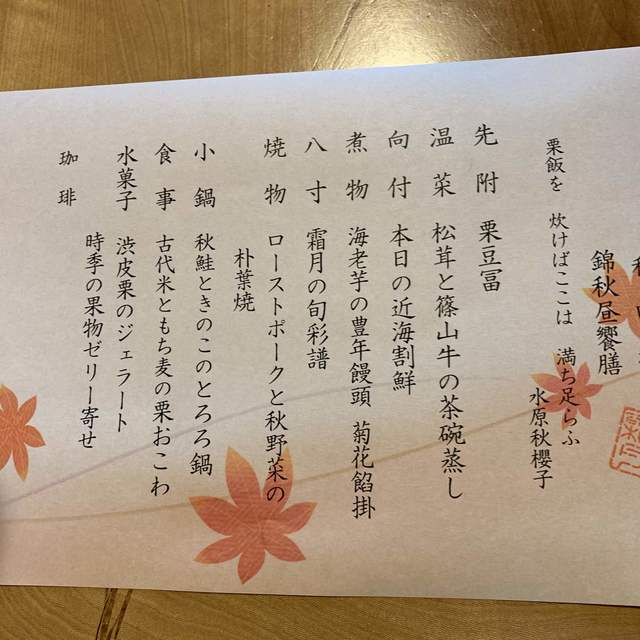 錦秋昼饗膳
栗飯を 炊けばここは 満ち足らふ
水原秋櫻子
先附 栗豆冨
温菜 松茸と篠山牛の茶碗蒸し
向付 本日の近海割鮮
煮物 海老芋の豊年饅頭 菊花餡掛
八寸 霜月の旬彩譜
焼物 ローストポークと秋野菜の
朴葉焼
小鍋 秋鮭ときのこのとろろ鍋
食事 古代米ともち麦の栗おこわ
水菓子 渋皮栗のジェラート
時季の果物ゼリー寄せ
珈琲